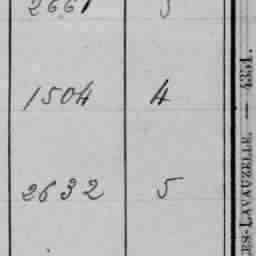 2661 5
1504 4
2632 5
ES-LAVAUZELLE. — 4351.